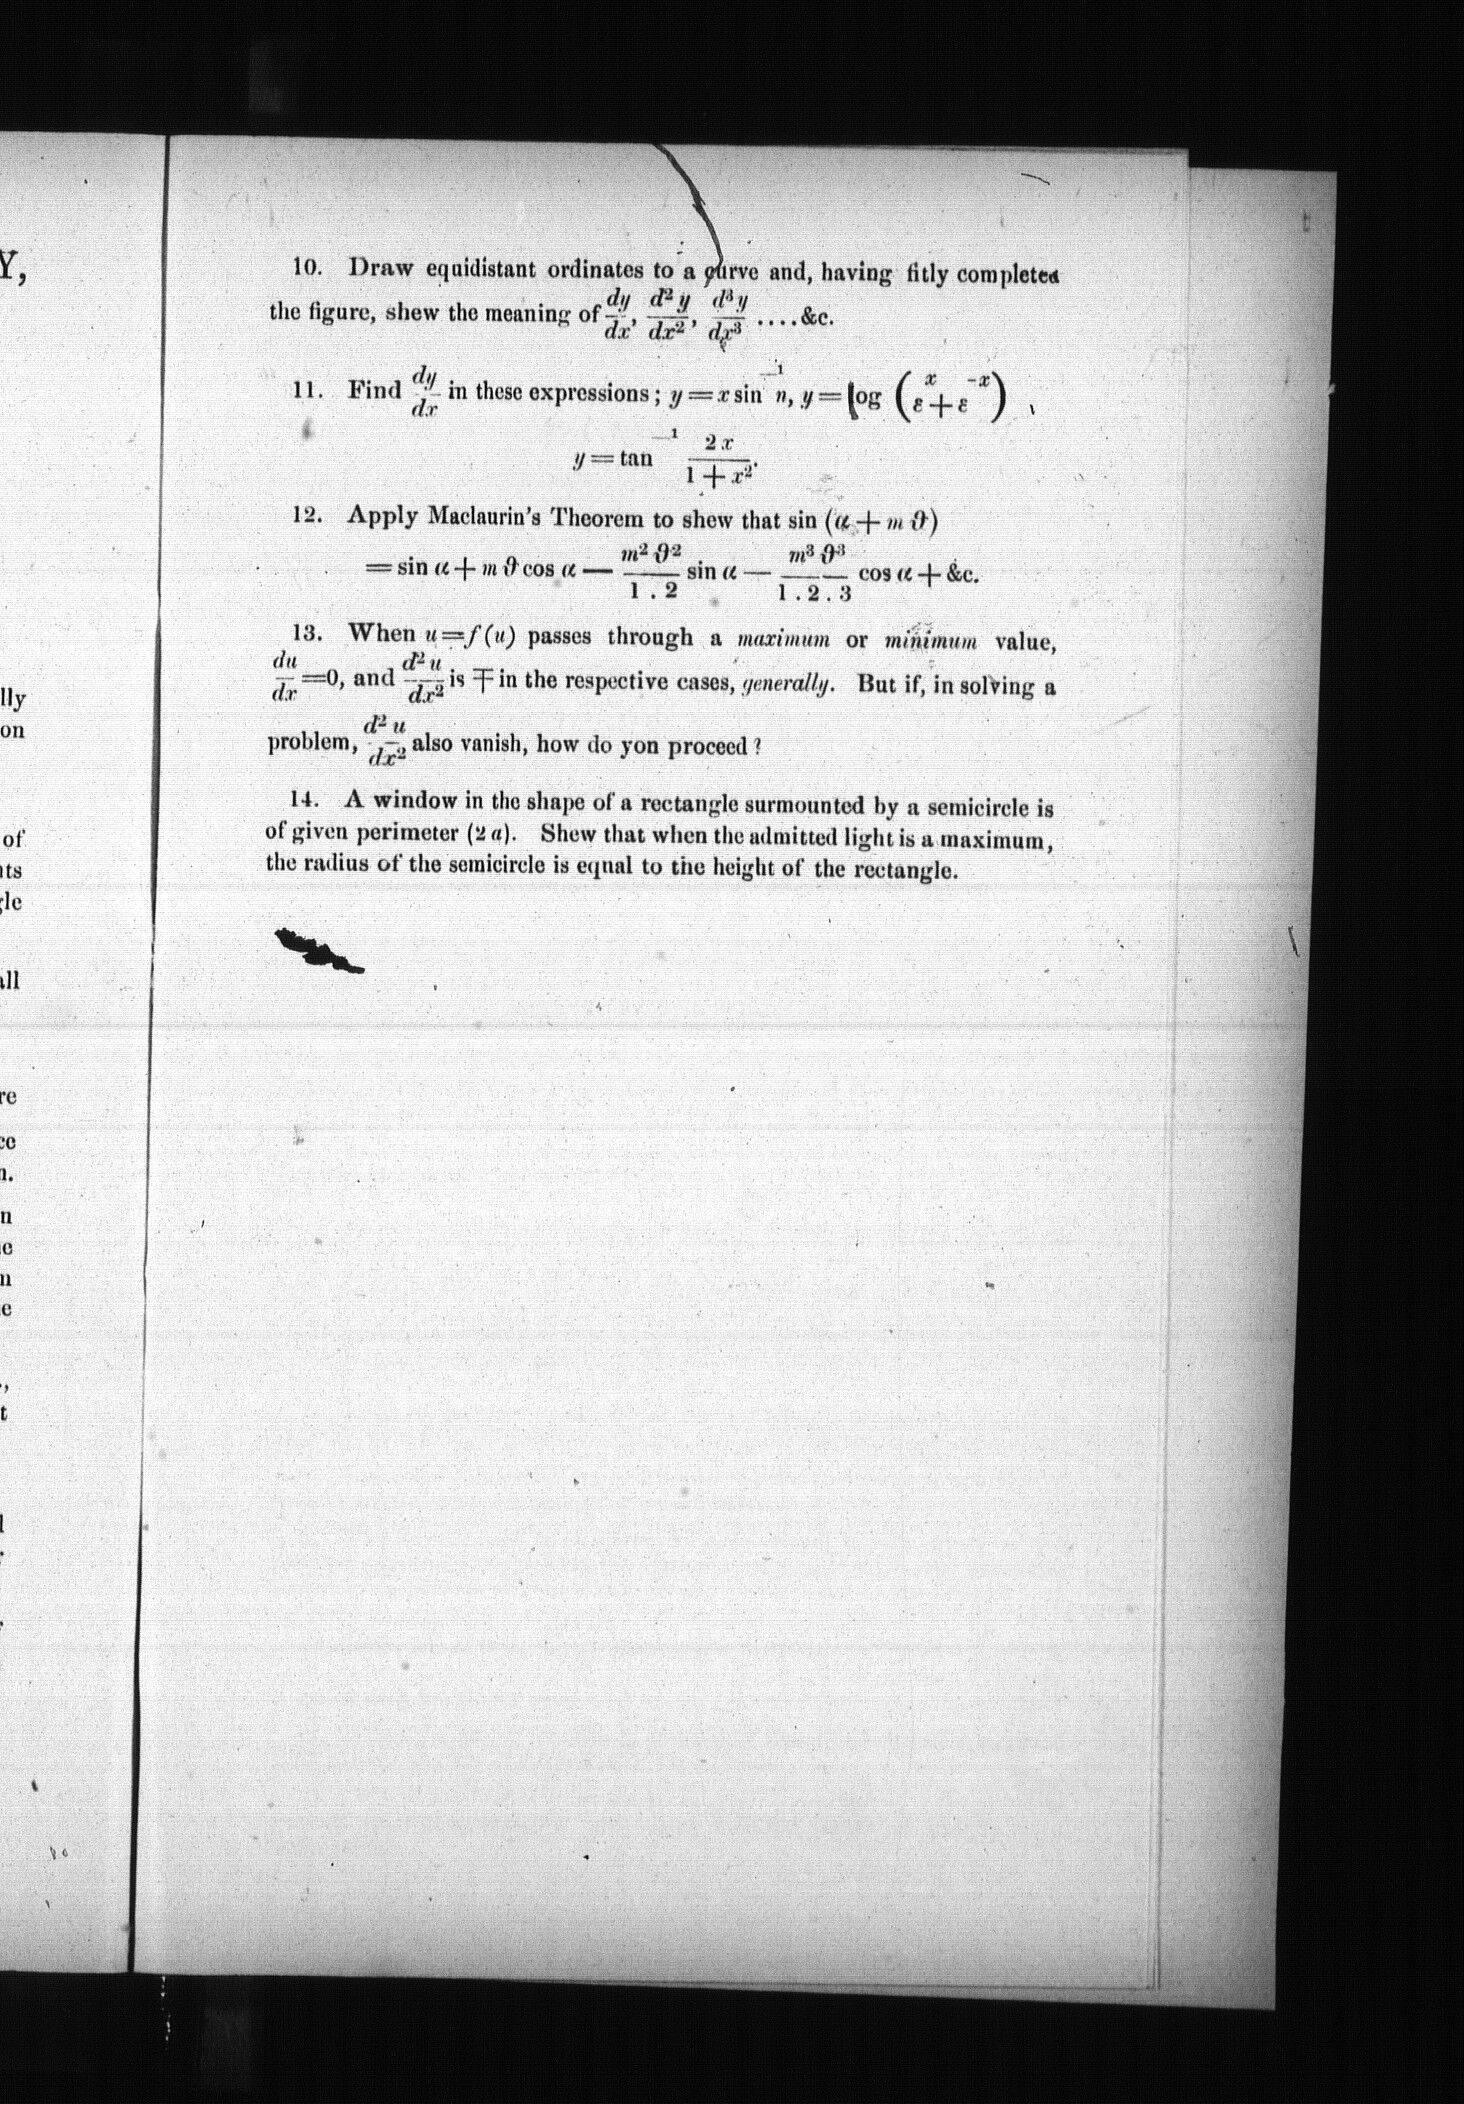 Y,
lly
on
of
nts
gle
all
re
ce
n.
n
e
n
e
t
10. Draw equidistant ordinates to a curve and, having fitly completed
the figure, shew the meaning of dy/dx, d² y/dx², d³ y/dx³ ....&c.
11. Find dy/dx in these expressions; y = x sin⁻¹ n, y = log (ε^x + ε^-x)
y = tan⁻¹ 2x/1 + x².
12. Apply Maclaurin's Theorem to shew that sin (α + m ϑ)
= sin α + m ϑ cos α — m² ϑ²/1 . 2 sin α — m³ ϑ³/1 . 2 . 3 cos α + &c.
13. When u = f (u) passes through a maximum or minimum value,
du/dx = 0, and d² u/dx² is ∓ in the respective cases, generally. But if, in solving a
problem, d² u/dx² also vanish, how do yon proceed ?
14. A window in the shape of a rectangle surmounted by a semicircle is
of given perimeter (2 a). Shew that when the admitted light is a maximum,
the radius of the semicircle is equal to the height of the rectangle.